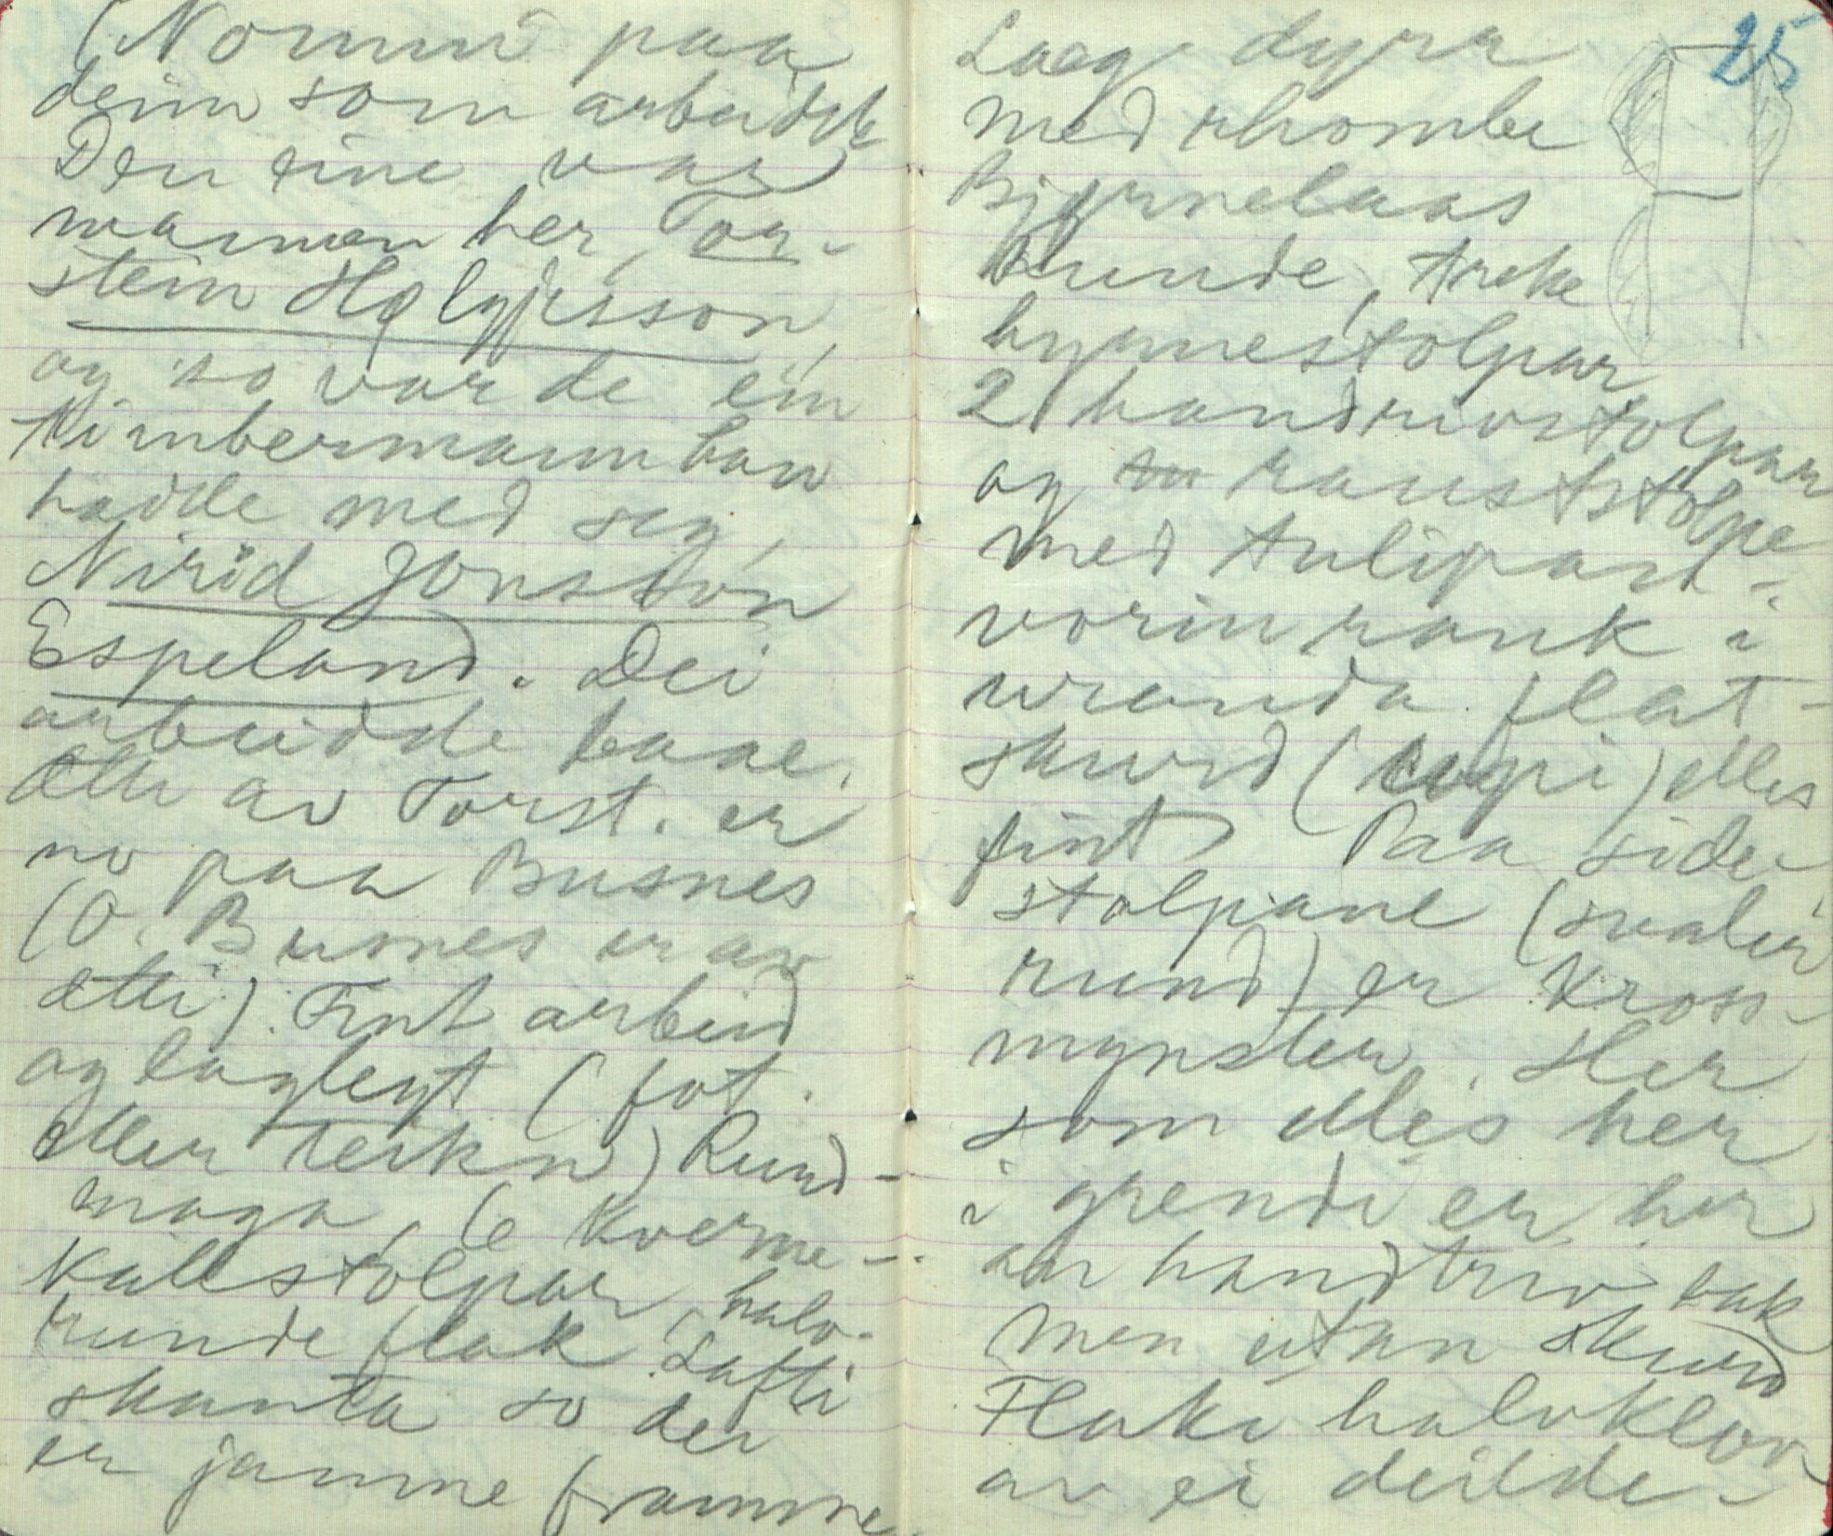 (Nomni paa
deim som arbeidde
Den eine var
mannen her, Tor-
stein Helgjesson,
og so var de ein
timbermann han
hadde med seg,
Nirid Jonsson
Espeland. Dei
arbeidde baae.
Ætti av Torst. er
no paa Busnes
(O. Busnes er av
ætti). Fint arbeid
og laglegt (fot.
eller teikn) Rund-
maga, 6 Kverne-
kallstolpar, halv-
runde flak Lafti
skanta so dei
er jamne framme
25
Laag dyrr
med rhombe
Bjørnelaas
Runde, treke
hyrnestolpar
2 handrivstolpar
og rauststolpe
med tulipan-
vorin rank i
vranda flat-
skurd ( ) elles
fint Paa side-
stolpane (svalir
rund) er Kross-
mynster. Her
som elles her
i grendi er her
handtriv bak
men utan skurd
Flaki halvklovr
av ei deilde-